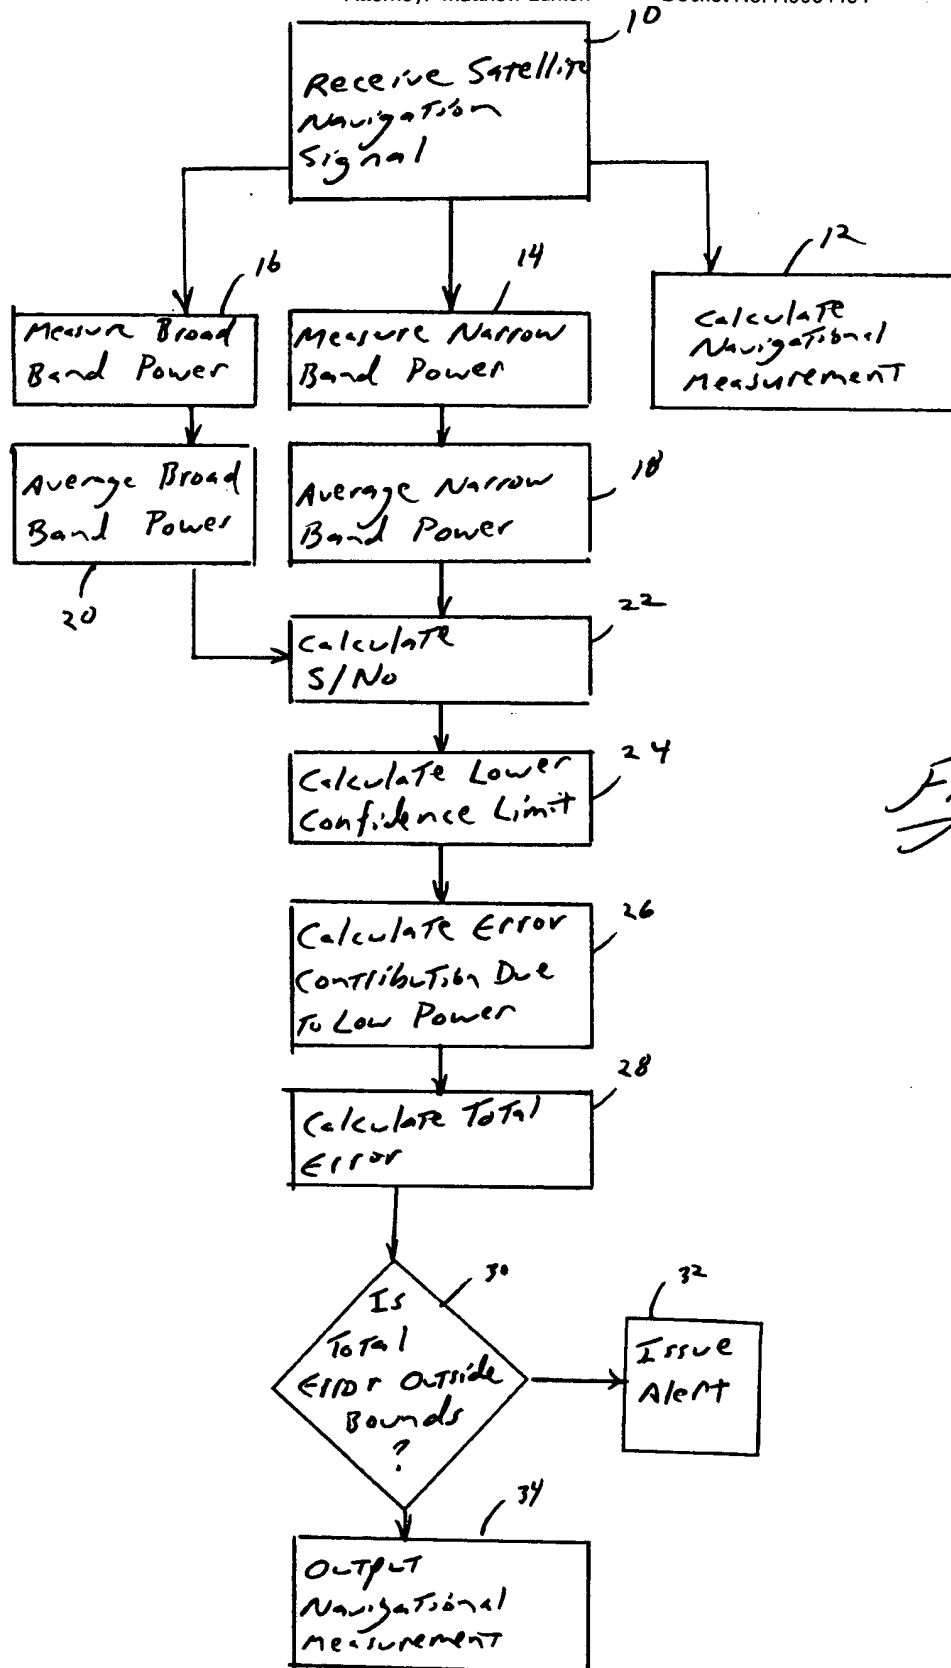 10
Receive Satellite
Navigation
Signal
16
14
12
Measure Broad
Band Power
Measure Narrow
Band Power
Calculate
Navigational
Measurement
Average Broad
Band Power
20
Average Narrow
Band Power
18
22
Calculate
S/No
24
Calculate Lower
Confidence Limit
26
Calculate Error
Contribution Due
To Low Power
28
Calculate Total
Error
30
Is
Total
Error Outside
Bounds
?
32
Issue
Alert
34
Output
Navigational
Measurement